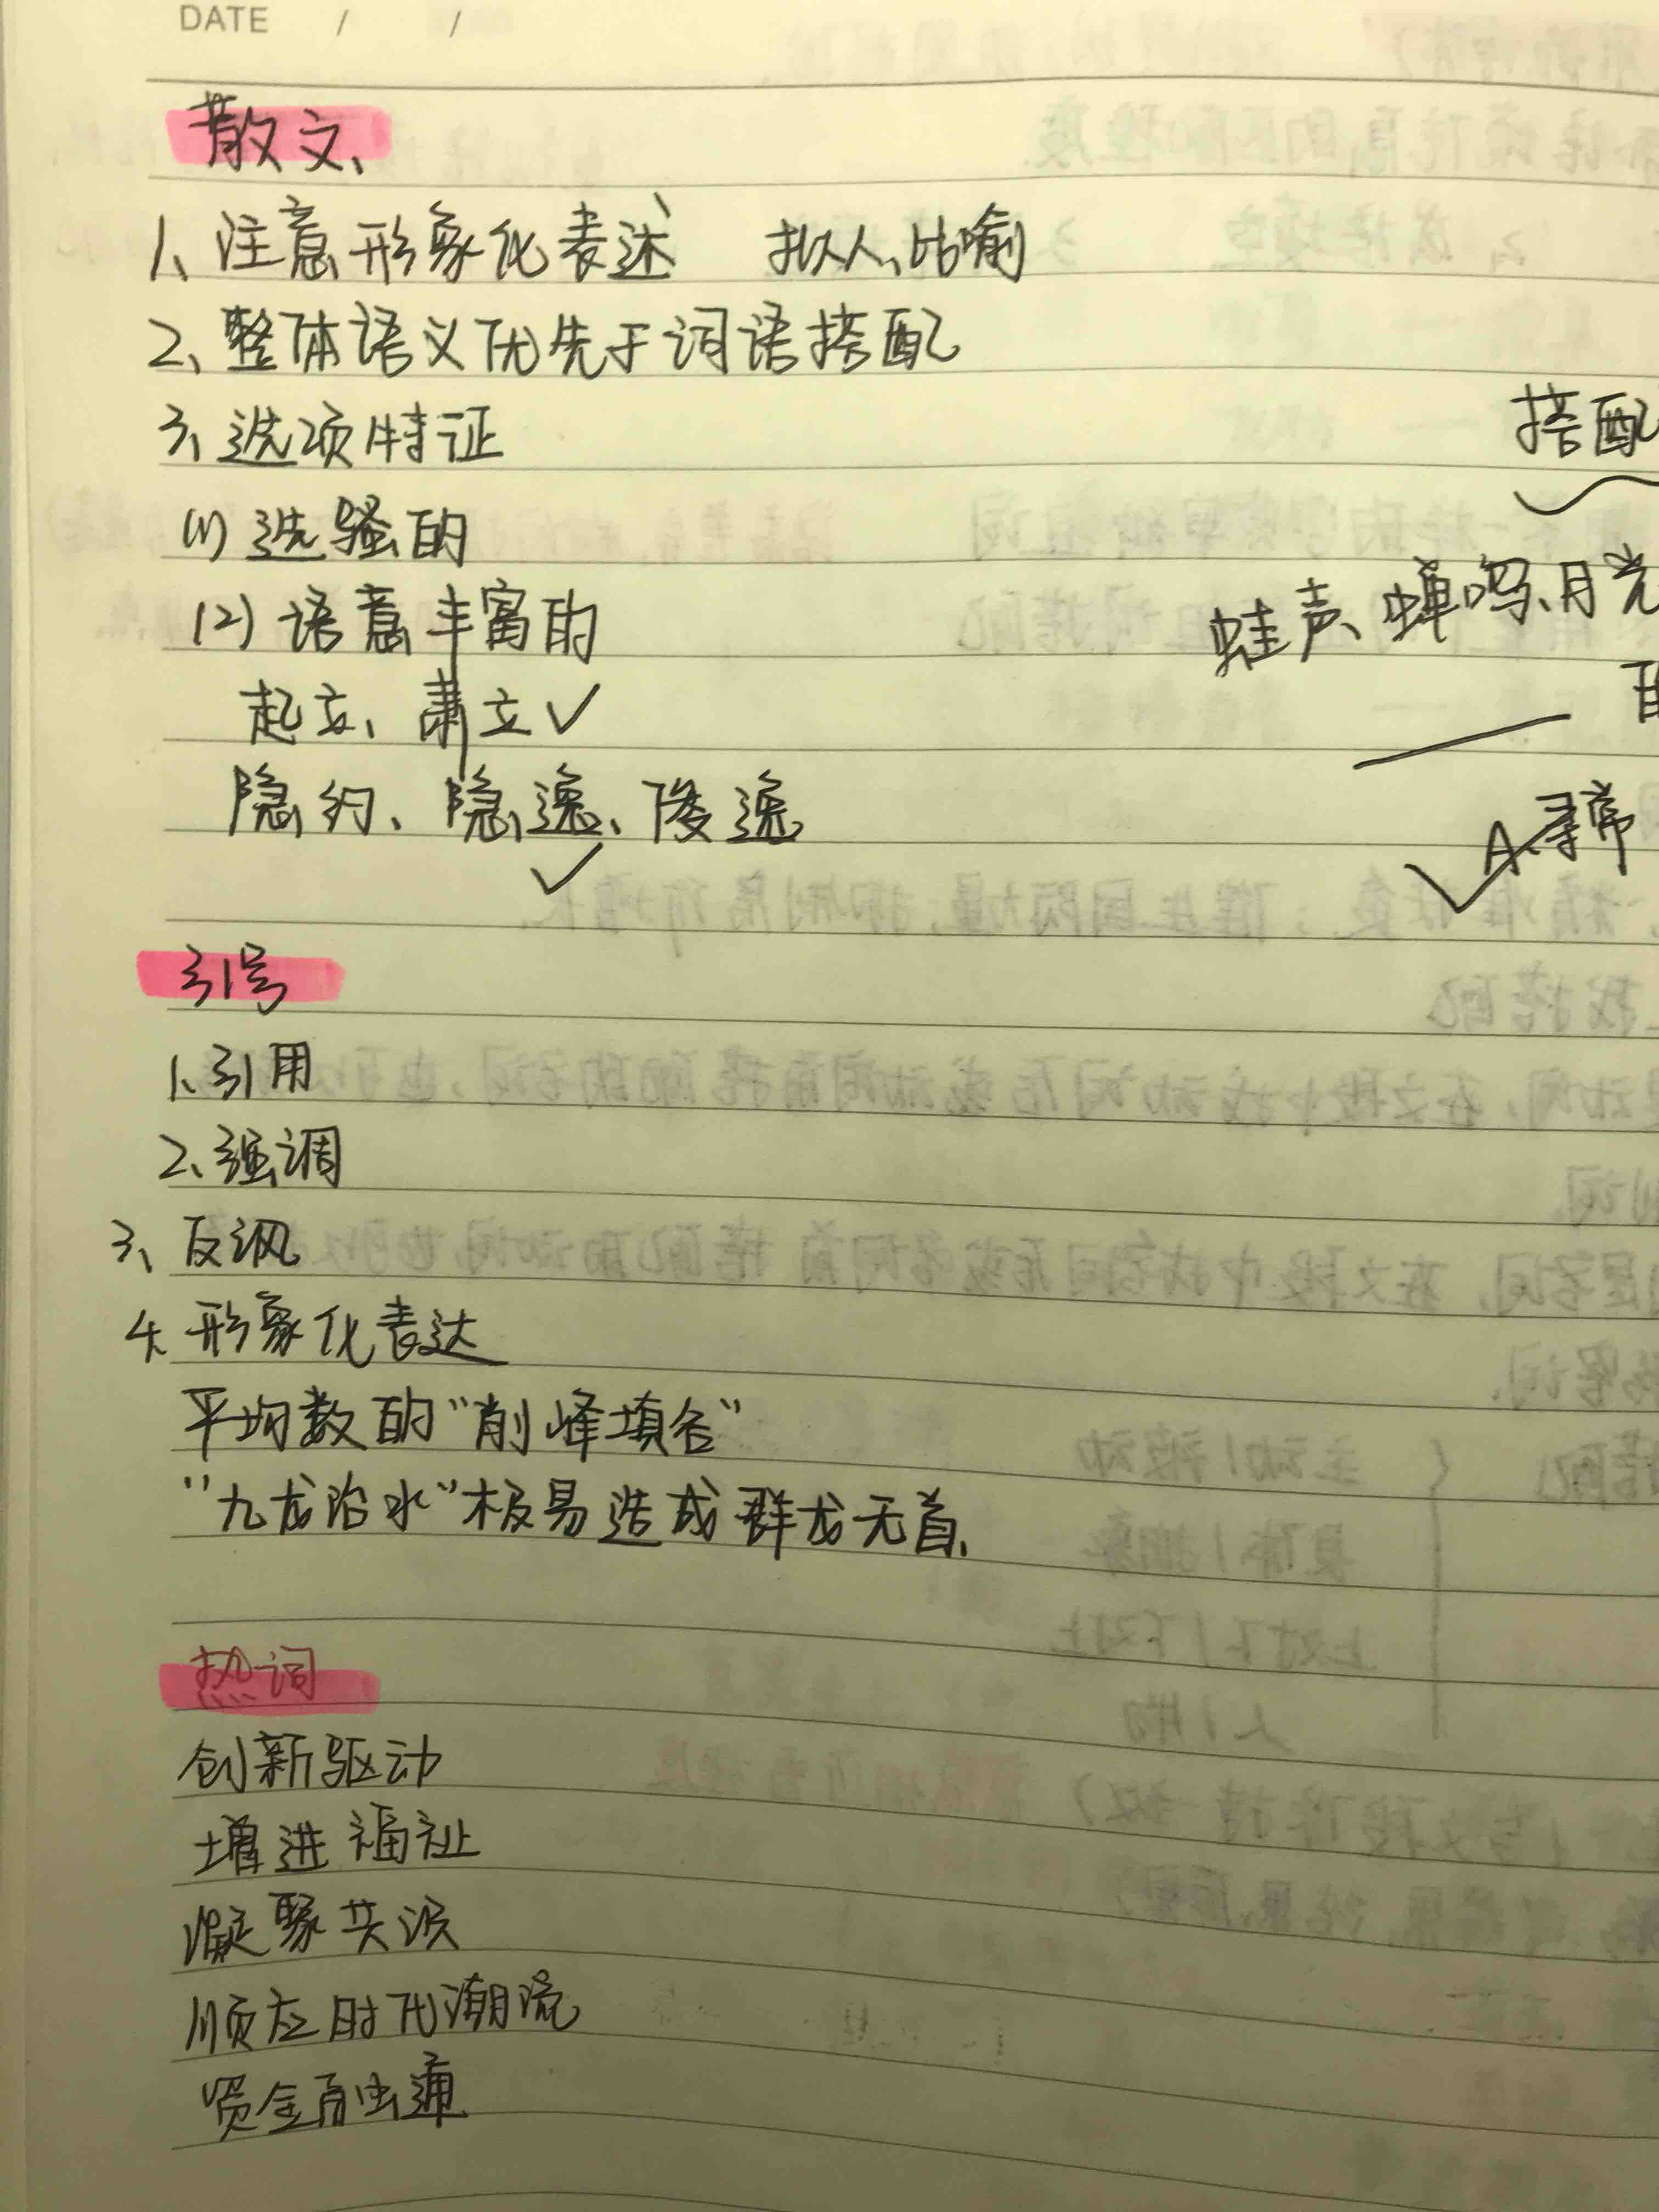 DATE / /
散文、
1、注意形象化表述 拟人、比喻
2、整体语义优先于词语搭配
3、选项特证
搭配
(1) 选骚的
(2) 语意丰富的
蛙声、蝉鸣、月光
起立、肃立✓
隐约、隐逸、俊逸
✓
✓A、寻常
引号
1、引用
2、强调
3、反讽
4、形象化表达
平均数的“削峰填谷”
“九龙治水”极易造成群龙无首、
热词
创新驱动
增进福祉
凝聚共识
顺应时代潮流
资金融通